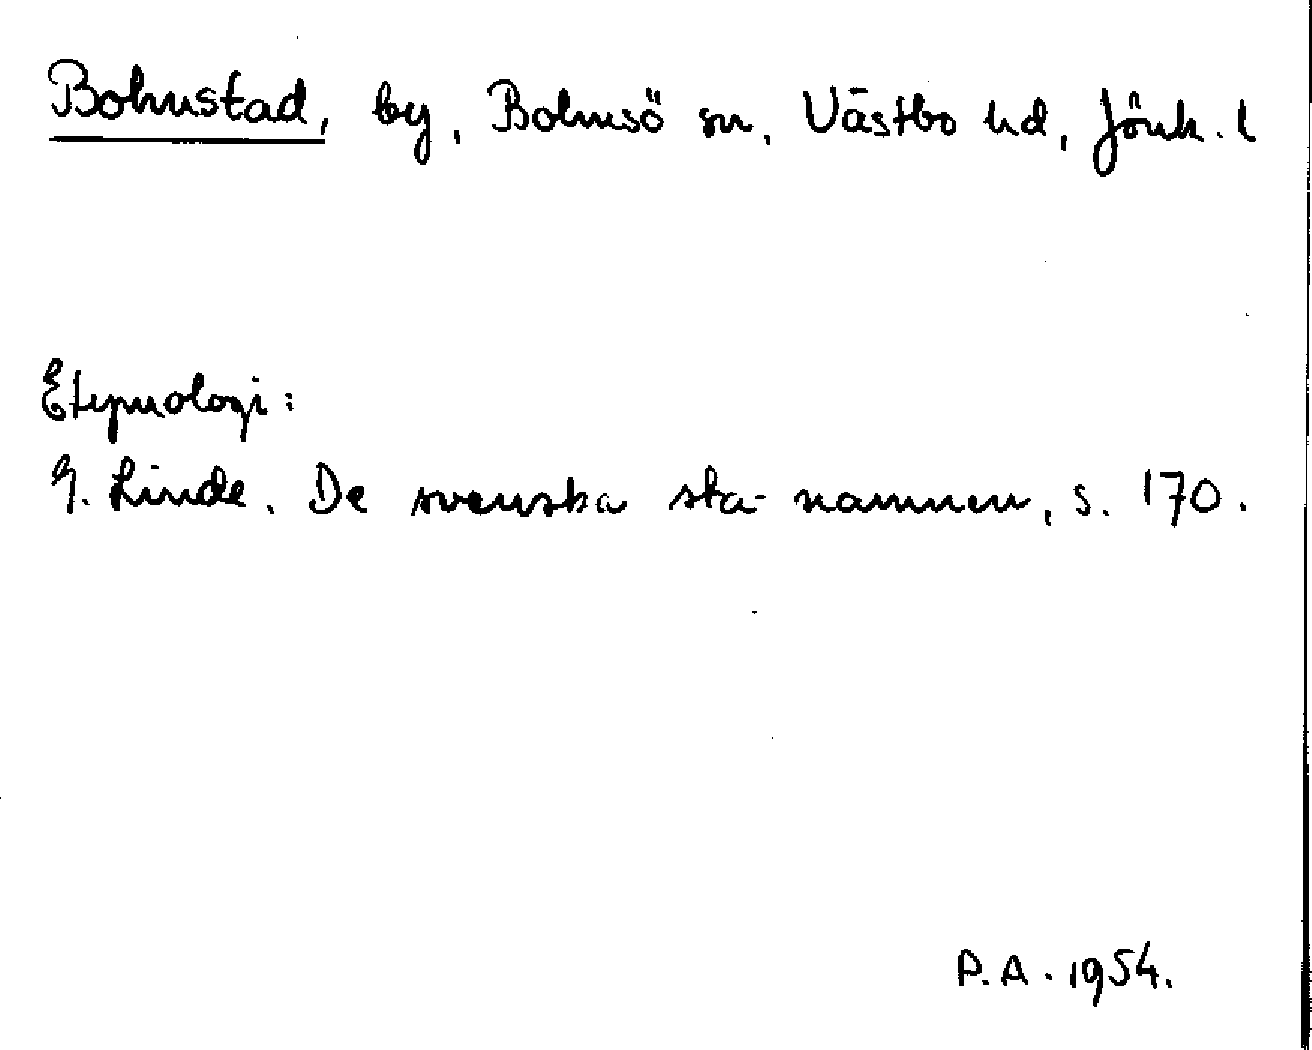 Bolmstad, by, Bolmsö sn, Västbo hd, Jönk. l
Etymologi:
G. Linde. De svenska sta-namnen, s. 170.
P.A. 1954.